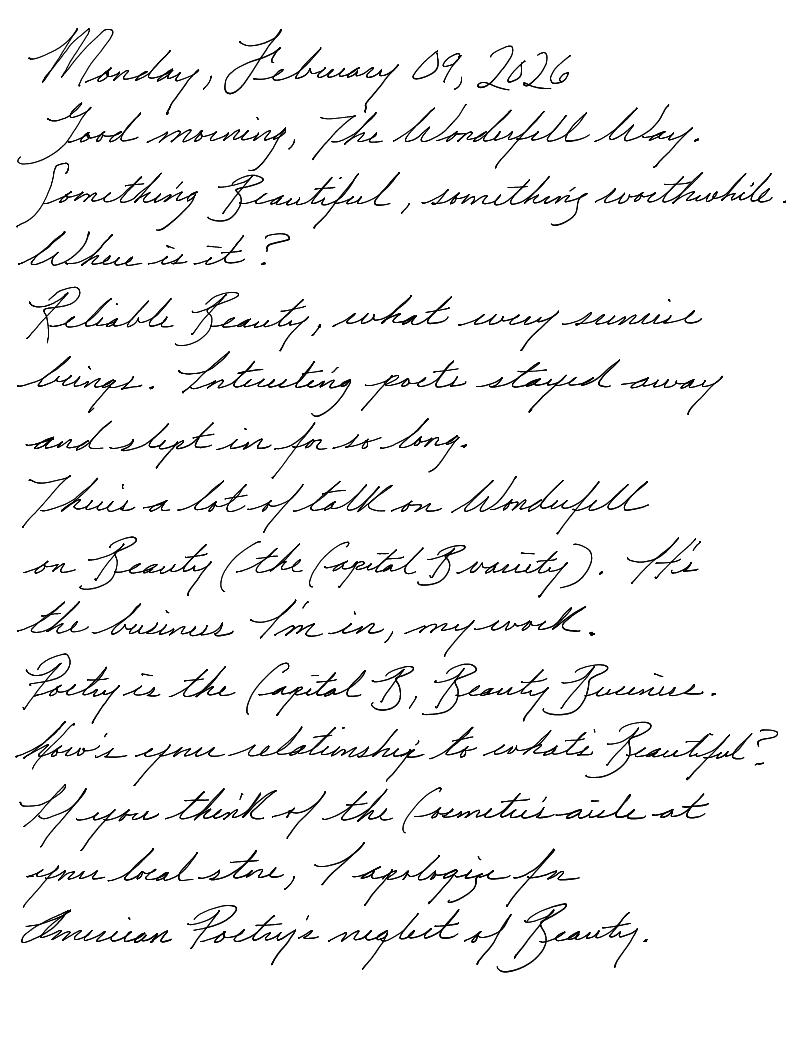 Monday, February 09, 2026
Good morning, The Wonderfell Way.
Something Beautiful, something worthwhile.
Where is it?
Reliable Beauty, what every sunrise
brings. Interesting poets stayed away
and slept in for so long.
There's a lot of talk on Wonderfell
on Beauty (the Capital B variety). It's
the business I'm in, my work.
Poetry is the Capital B, Beauty Business.
How's your relationship to what's Beautiful?
If you think of the Cosmetics aisle at
your local store, I apologize for
American Poetry's neglect of Beauty.